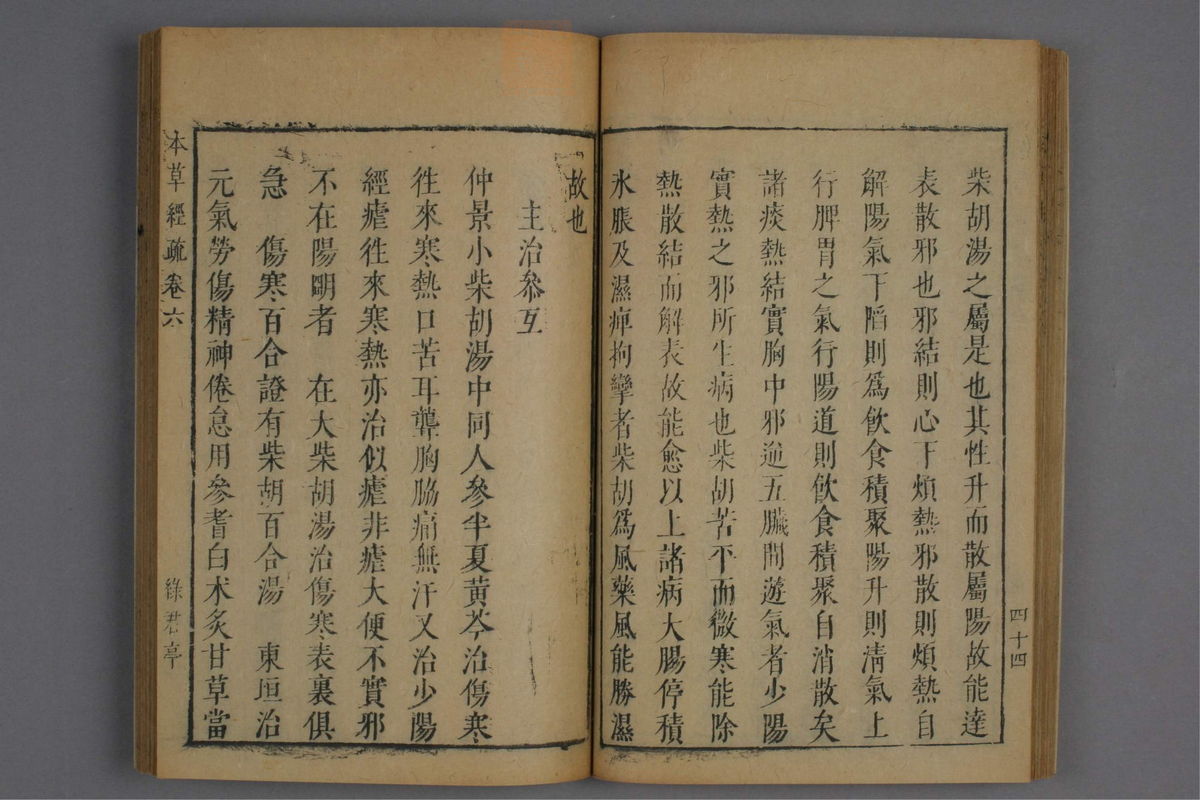 柴胡湯之屬是也其性升而散屬陽故能達
表散邪也邪結則心下煩熱邪散則煩熱自
解陽氣下䧟則爲飲食積聚陽升則淸氣上
行脾胃之氣行陽道則飲食積聚自消散矣
諸痰熱結實胸中邪逆五臟間遊氣者少陽
實熱之邪所生病也柴胡苦平而微寒能除
熱散結而解表故能愈以上諸病大腸停積
水脹及濕痺拘攣者柴胡爲風藥風能勝濕
四十四
故也
主治參互
仲景小柴胡湯中同人參半夏黃芩治傷寒
徃來寒熱口苦耳聾胸脇痛無汗又治少陽
經瘧徃來寒熱亦治似瘧非瘧大便不實邪
不在陽明者　在大柴胡湯治傷寒表裏俱
急　傷寒百合證有柴胡百合湯　東垣治
元氣勞傷精神倦怠用參耆白术炙甘草當
本草經疏卷六
綠君亭